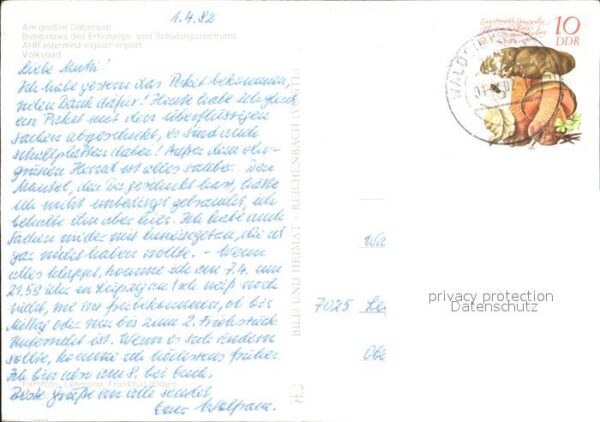 1.4.82
Am großen Dabersee
Bungalows des Erholungs- und Schulungszentrums
AHB intermed-export-import
Volksbad
Liebe Mutti!
Ich habe gestern das Paket bekommen,
vielen Dank dafür! Heute habe ich gleich
ein Paket mit den überflüssigen
Sachen abgeschickt, es sind auch
Schallplatten dabei! Außer dem oliv-
grünen Hemd ist alles sauber. Den
Mantel, den Du geschickt hast, hätte
ich nicht unbedingt gebraucht, ich
behalte ihn aber hier. Ich habe auch
Sachen wieder mit, die ich
gar nicht haben wollte. - Wenn
alles klappt, komme ich am 7.4. um
21.59 Uhr in Leipzig an! Ich weiß noch
nicht, wie wir freibekommen, ob bis
Mittag oder nur bis zum 2. Frühstück
Unterricht ist. Wenn es sich ändern
sollte, komme ich höchstens früher.
Ich bin also am 8. bei Euch.
Beste Grüße an alle sendet
Euer Wolfram.
Farbfoto: Lehmann, Frankfurt (Oder)
BILD UND HEIMAT REICHENBACH (VOGTL)
10
DDR
WALDSI
Wa
7025 Le
Obe
privacy protection
Datenschutz